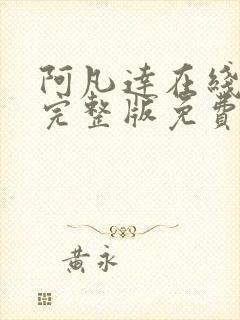 阿凡達在綫
完整版免費
黃永